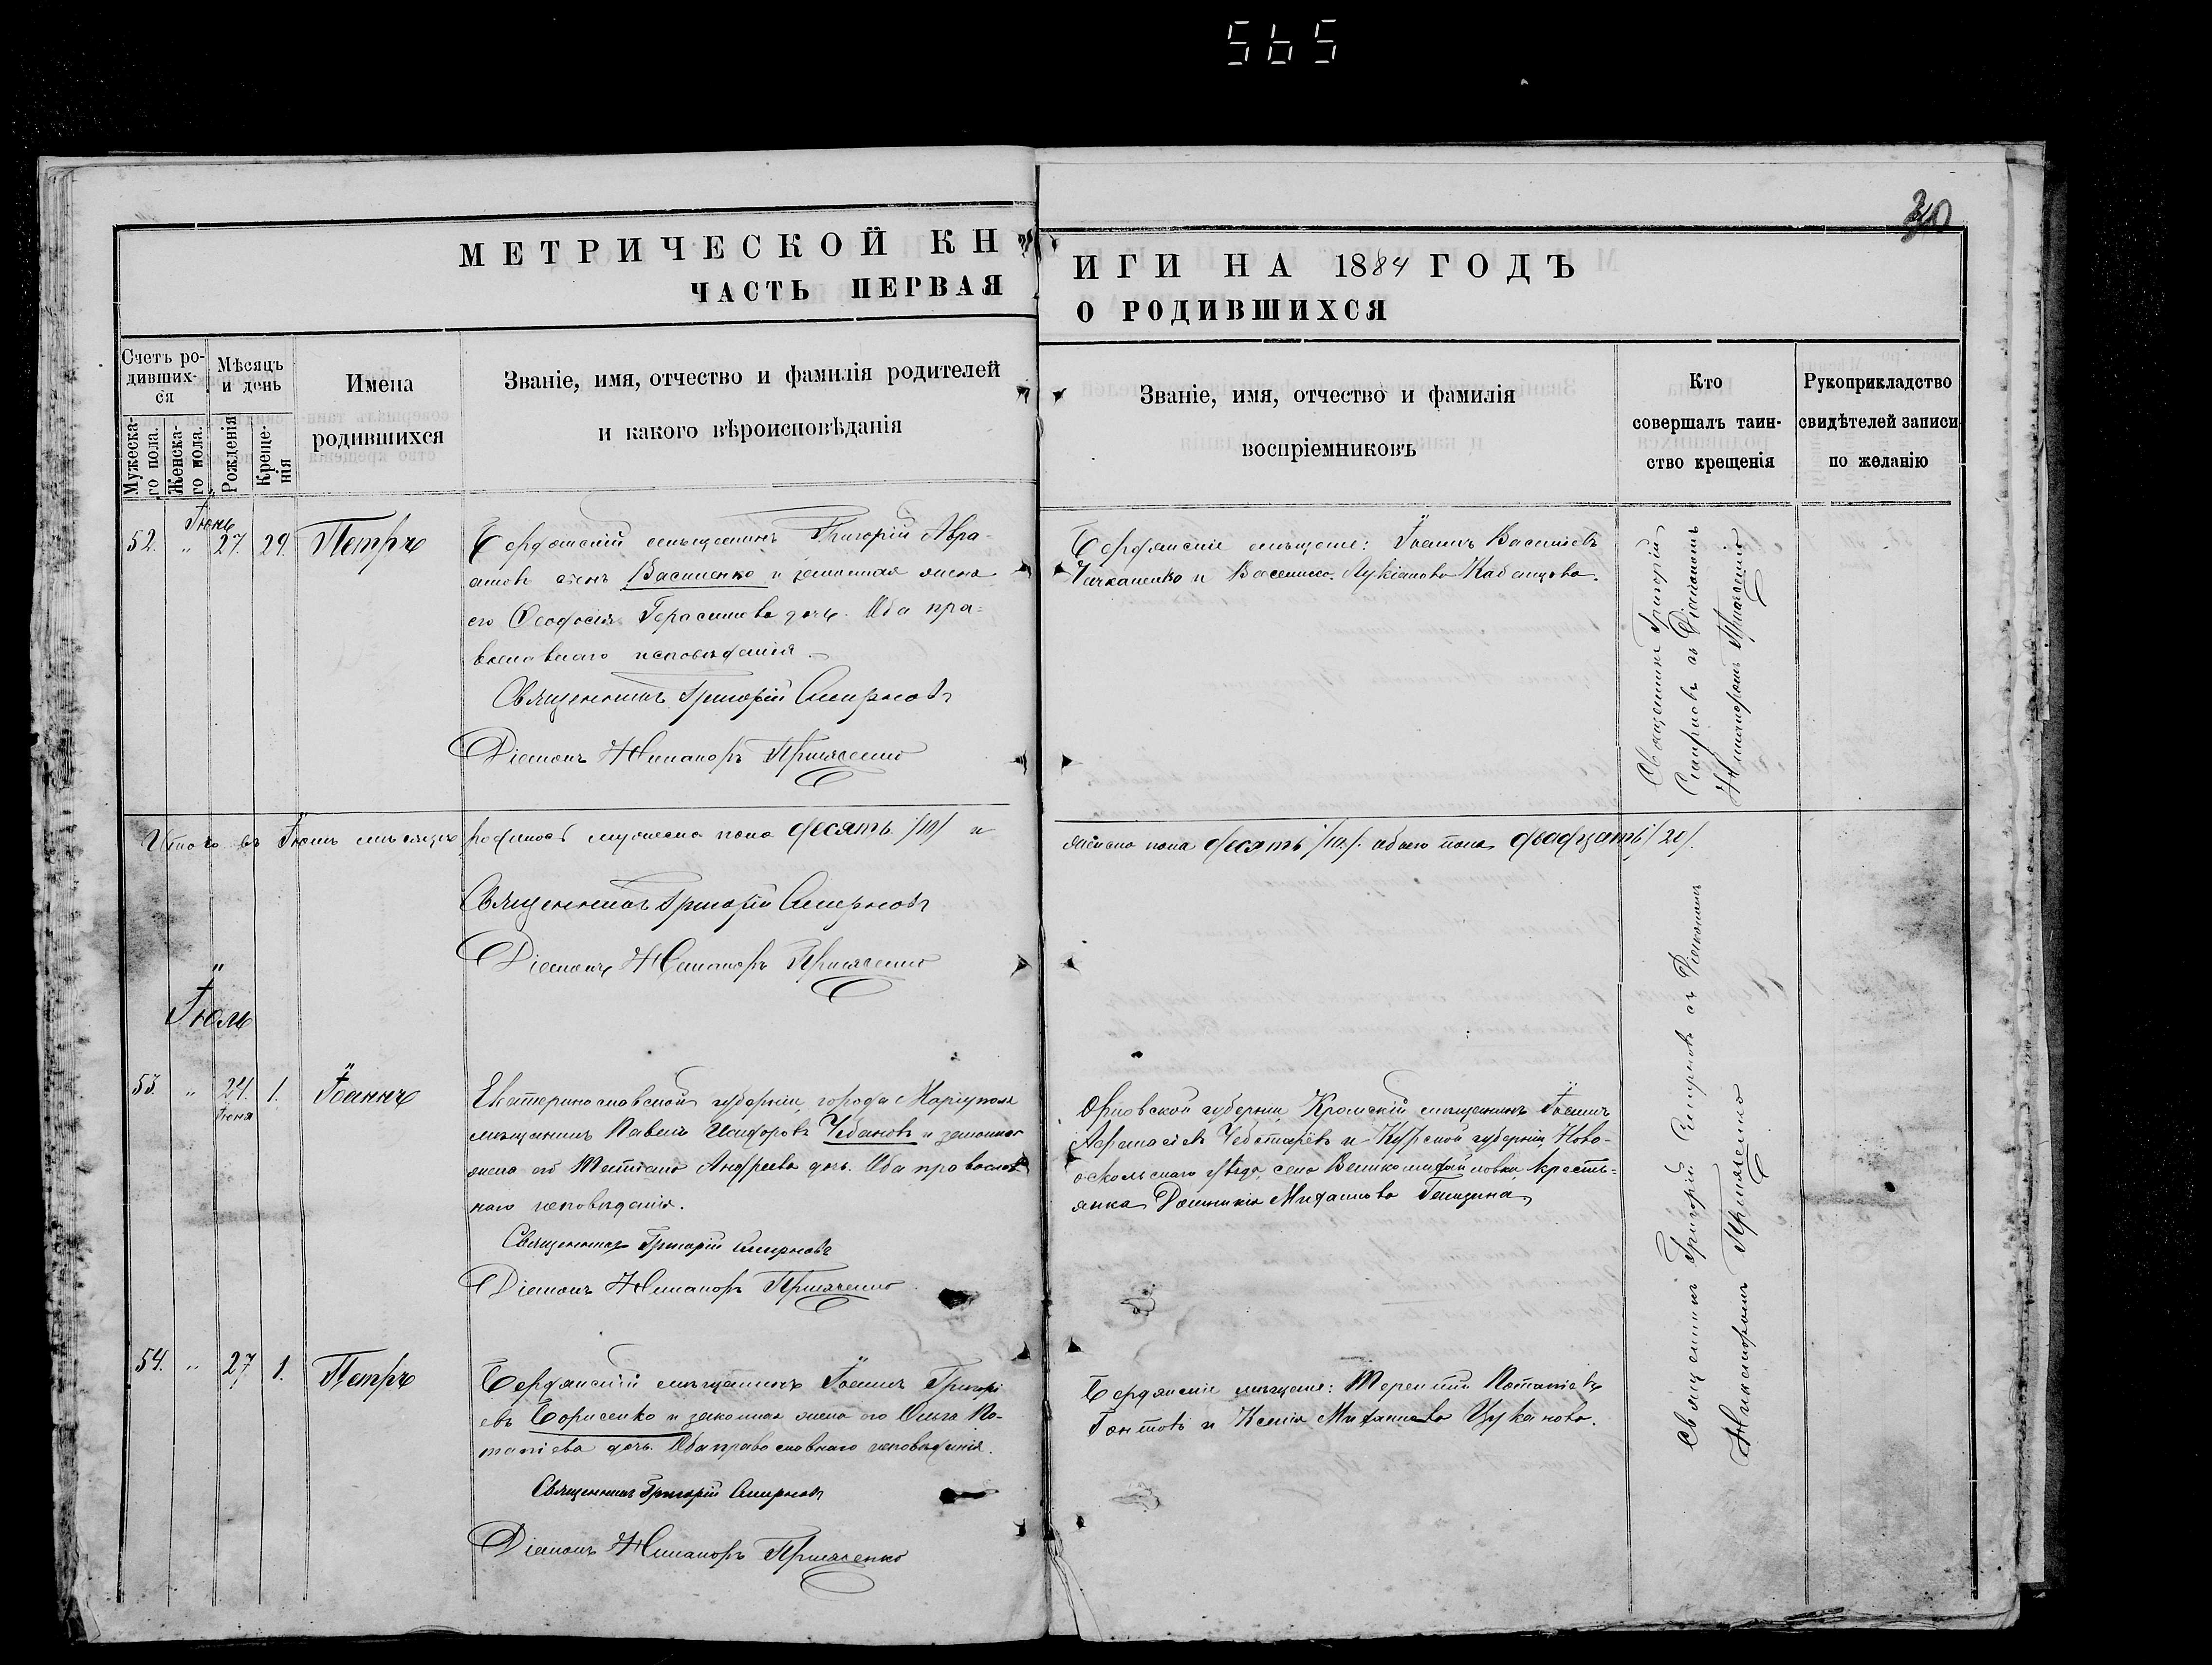 565
30
МЕТРИЧЕСКОЙ КНИГИ НА 1884 ГОДЪ
ЧАСТЬ ПЕРВАЯ О РОДИВШИХСЯ
Счетъ ро-
дивших-
ся
Мужеска-
го пола.
Женска-
го пола.
Мѣсяцъ
и день
Рожденія
Креще-
нія
Имена
родившихся
Званіе, имя, отчество и фамилія родителей
и какого вѣроисповѣданія
Званіе, имя, отчество и фамилія
воспріемниковъ
Кто
совершалъ таин-
ство крещенія
Рукоприкладство
свидѣтелей записи
по желанію
Іюнь
52. " 27. 29. Петръ
Бердянскій мѣщанинъ Григорій Авра-
амовъ сынъ Василенко и законная жена
его Ѳеодосія Герасимова дочь. Оба пра-
вославнаго исповѣданія.
Священникъ Григорій Смирновъ
Діаконъ Никаноръ
Бердянскіе мѣщане: Іоаннъ Васильевъ
и Василиса Лукіанова
Священникъ Григорій
Смирновъ съ Діакономъ
Никаноромъ
Итого въ Іюнѣ мѣсяцѣ родилось мужеска пола десять /10/ и
женска пола десять /10/. обоего пола двадцать /20/.
Священникъ Григорій Смирновъ
Діаконъ Никаноръ
Іюль
53. " 24. 1. Іоаннъ
Іюня
Екатеринославской губерніи, города Маріуполя
мѣщанинъ Павелъ Исидоровъ Чебановъ и законная
жена его Татіана Андреева дочь. Оба православ-
наго исповѣданія.
Священникъ Григорій Смирновъ
Діаконъ Никаноръ
Орловской губерніи Кромскій мѣщанинъ Іоаннъ
Аѳанасіевъ Чеботарёвъ и Курской губерніи, Ново-
оскольскаго уѣзда, села Великомихайловки, кресть-
янка Домникія Михаилова
Священникъ Григорій Смирновъ съ Діакономъ
Никаноромъ
54. " 27 1. Петръ
Бердянскій мѣщанинъ Іоаннъ Григорі-
евъ Борисенко и законная жена его Ольга По-
тапіева дочь. Оба православнаго исповѣданія.
Священникъ Григорій Смирновъ
Діаконъ Никаноръ
Бердянскіе мѣщане: Терентій Потапіевъ
Гонтовъ и Ксенія Михаилова Цуканова.